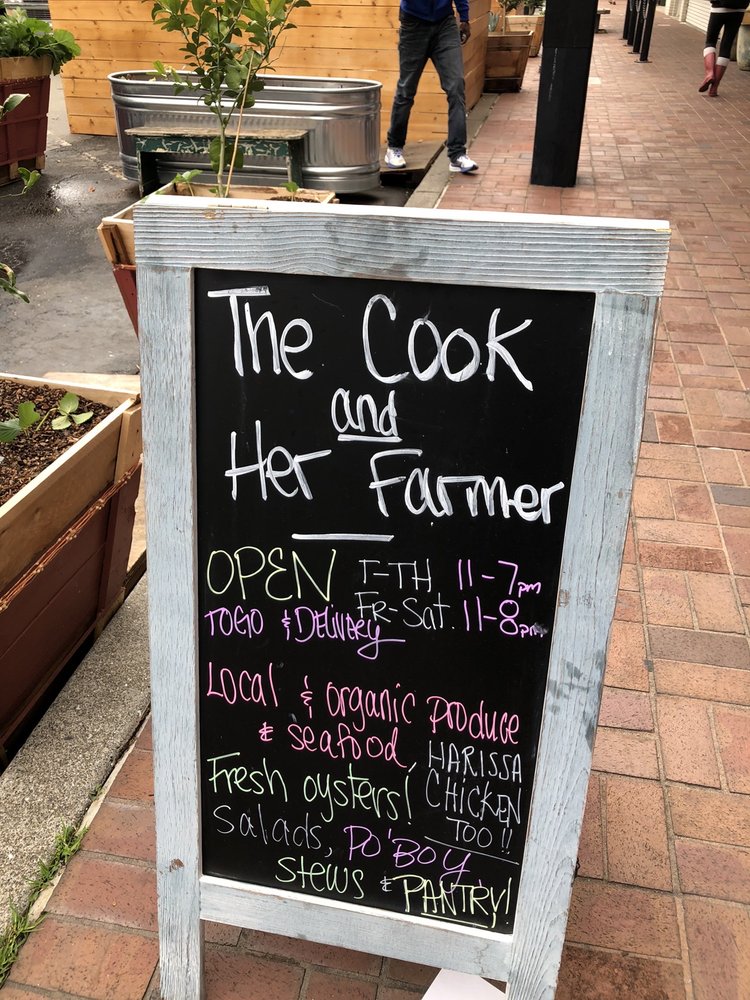 The Cook
and
Her Farmer
OPEN T-TH 11-7pm
TOGO & DELIVERY FR-Sat. 11-8pm
Local & organic produce
& seafood,
HARISSA
Fresh oysters!
CHICKEN
TOO!!
Salads, PO'BOY
Stews & PANTRY!